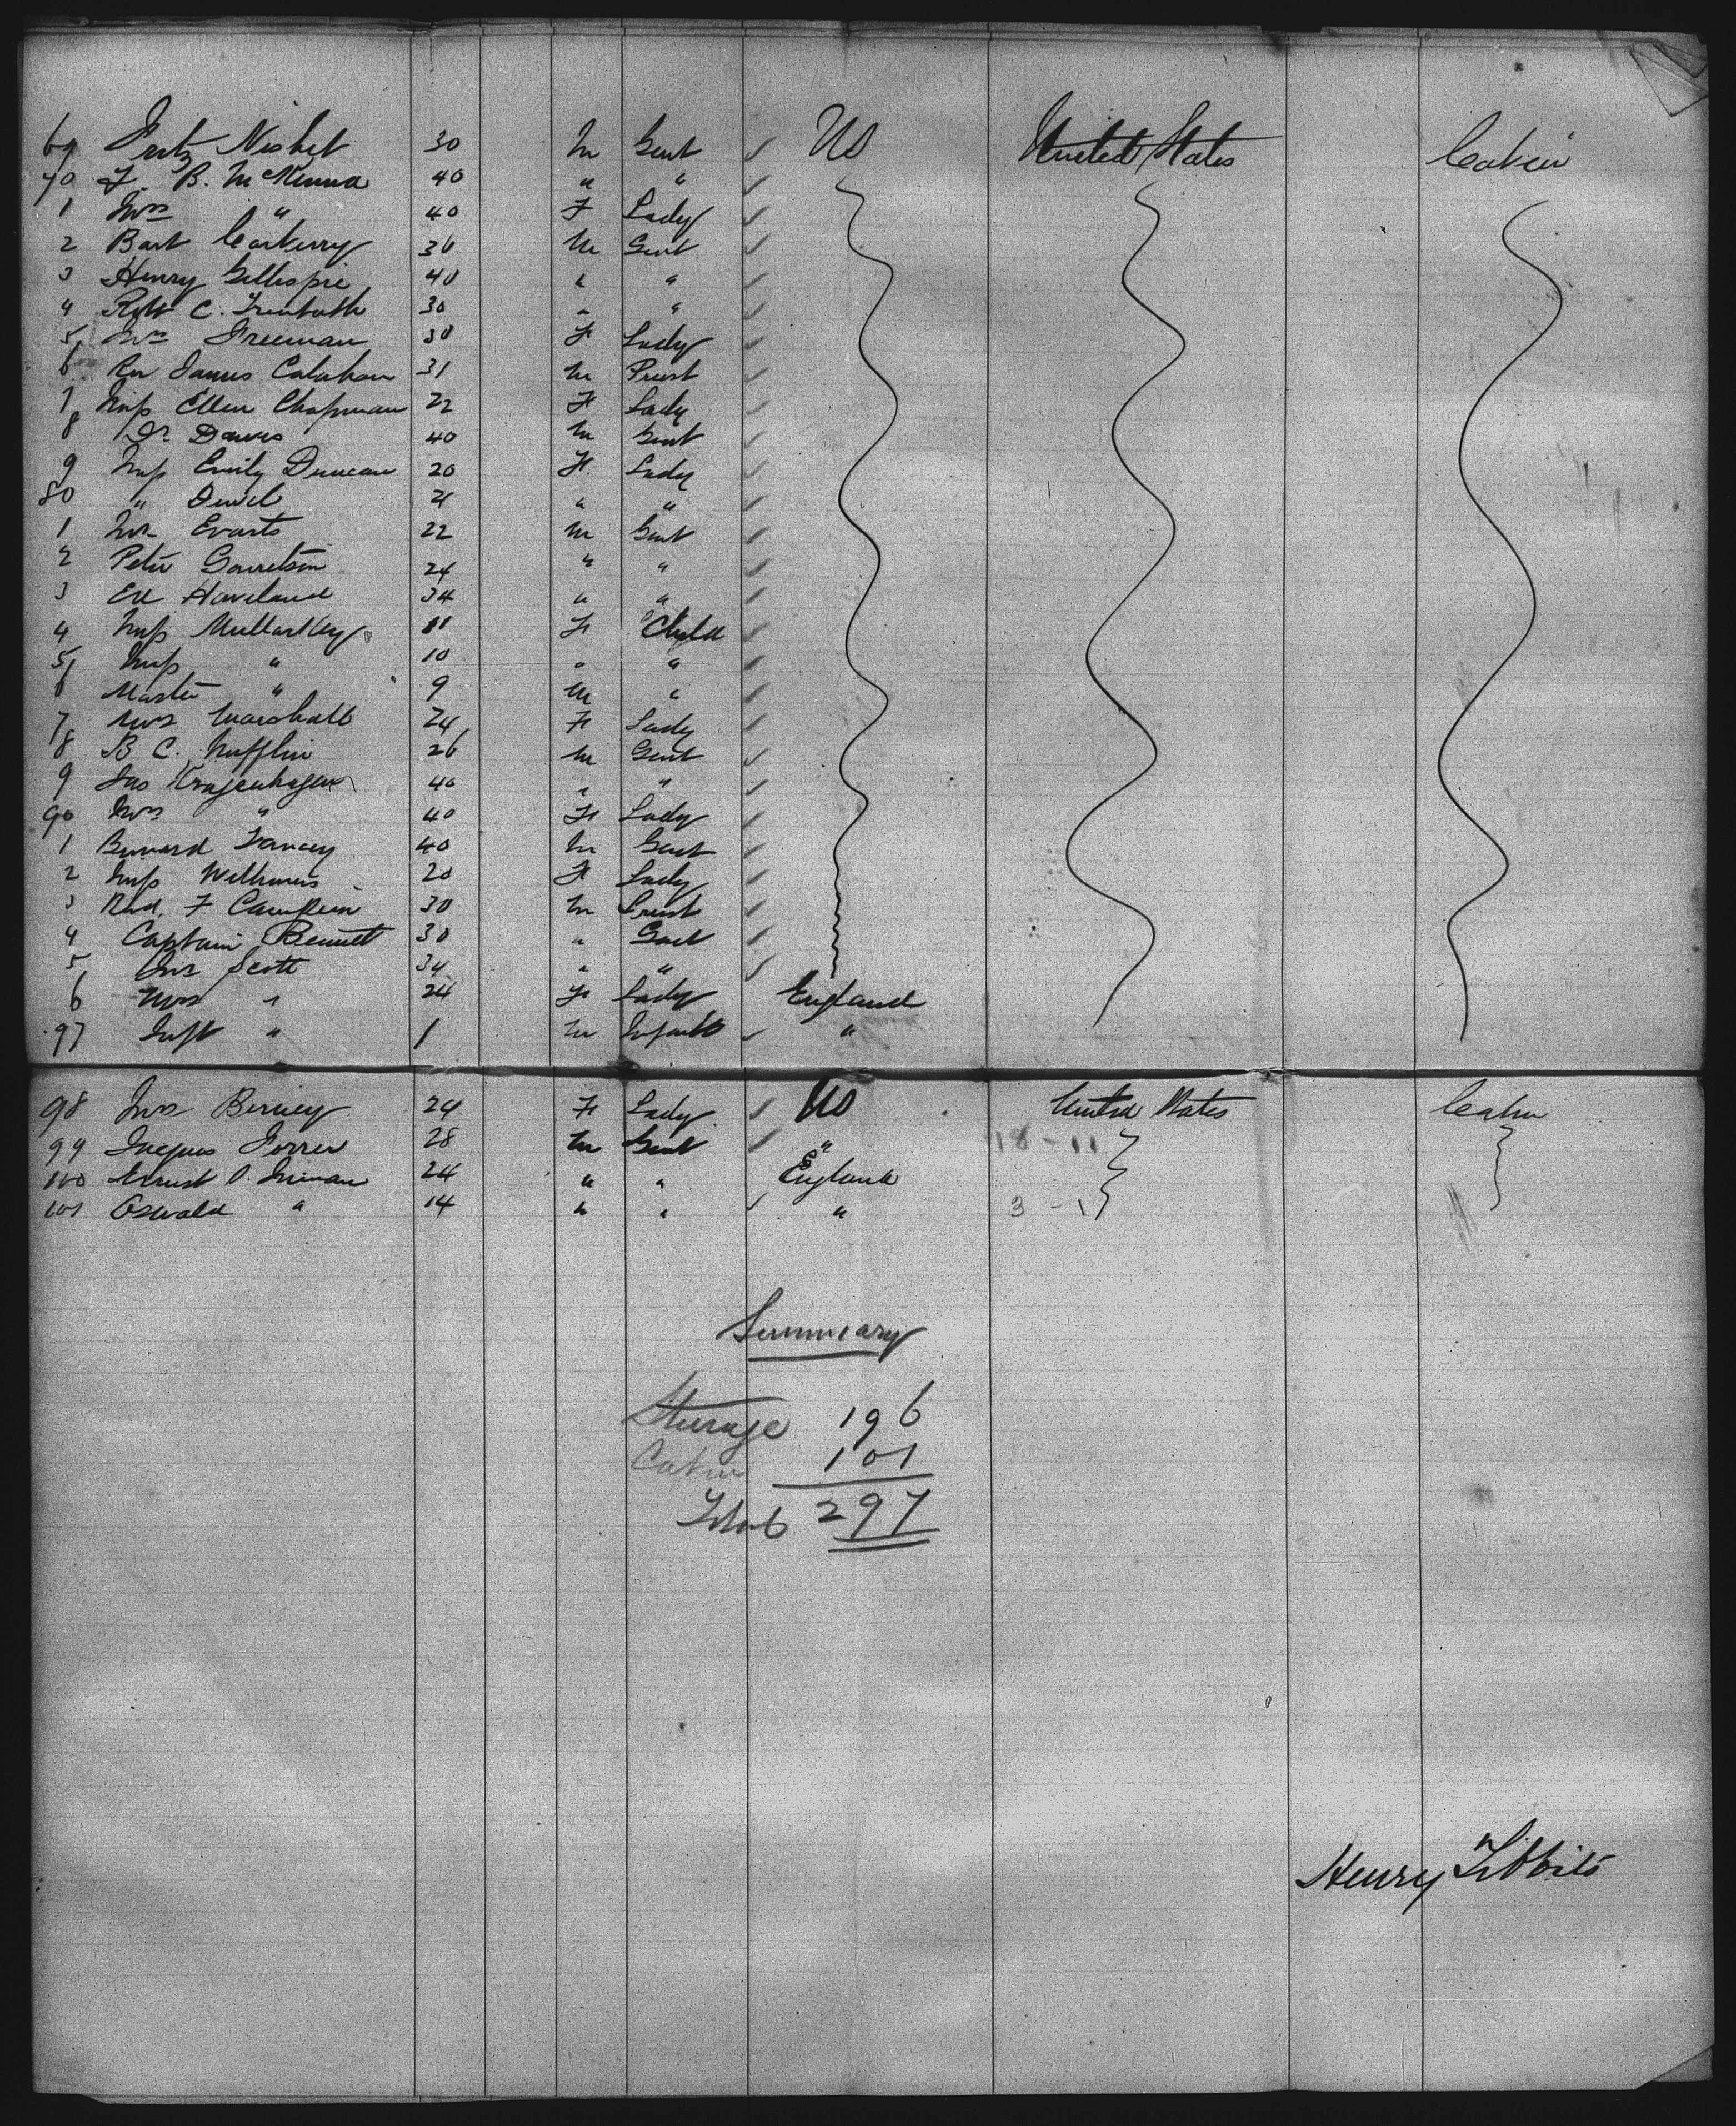 69 Fritz Nisbet 30 M Gent US United States Cabin
70 F. B. McKenna 40 " "
1 Mrs " 40 F Lady
2 Bart Carkerry 36 M Gent
3 Henry Gillespie 40 " "
4 Robt C. 30 " "
5 Mrs Freeman 30 F Lady
6 Rev James Calahan 31 M Priest
7 Miss Ellen Chapman 22 F Lady
8 Dr Davis 40 M Gent
9 Miss Emily Duncan 20 F Lady
80 " 21 " "
1 Mr Evarts 22 M Gent
2 Peter Garretson 24 " "
3 Ed Haviland 34 " "
4 Miss Mullarkey 11 F Child
5 Miss " 10 " "
6 Master " 9 M "
7 Mrs Marshall 24 F Lady
8 B C. Mifflin 26 M Gent
9 Jas 40 " "
90 Mrs " 40 F Lady
1 Bernard 40 M Gent
2 Miss Williams 20 F Lady
3 Revd. F 30 M Priest
4 Captain Bennet 30 " Gent
5 Mr Scott 34 " "
6 Mrs " 24 F Lady England
97 Inft " 1 M Infant "
98 Mrs Berney 24 F Lady US United States Cabin
99 Jacques 28 M Gent " 18 - 11
100 Ernest O. Inman 24 " " England
101 Oswald " 14 " " " 3 - 1
Summary
Steerage 196
Cabin 101
Total 297
Henry Tibbits